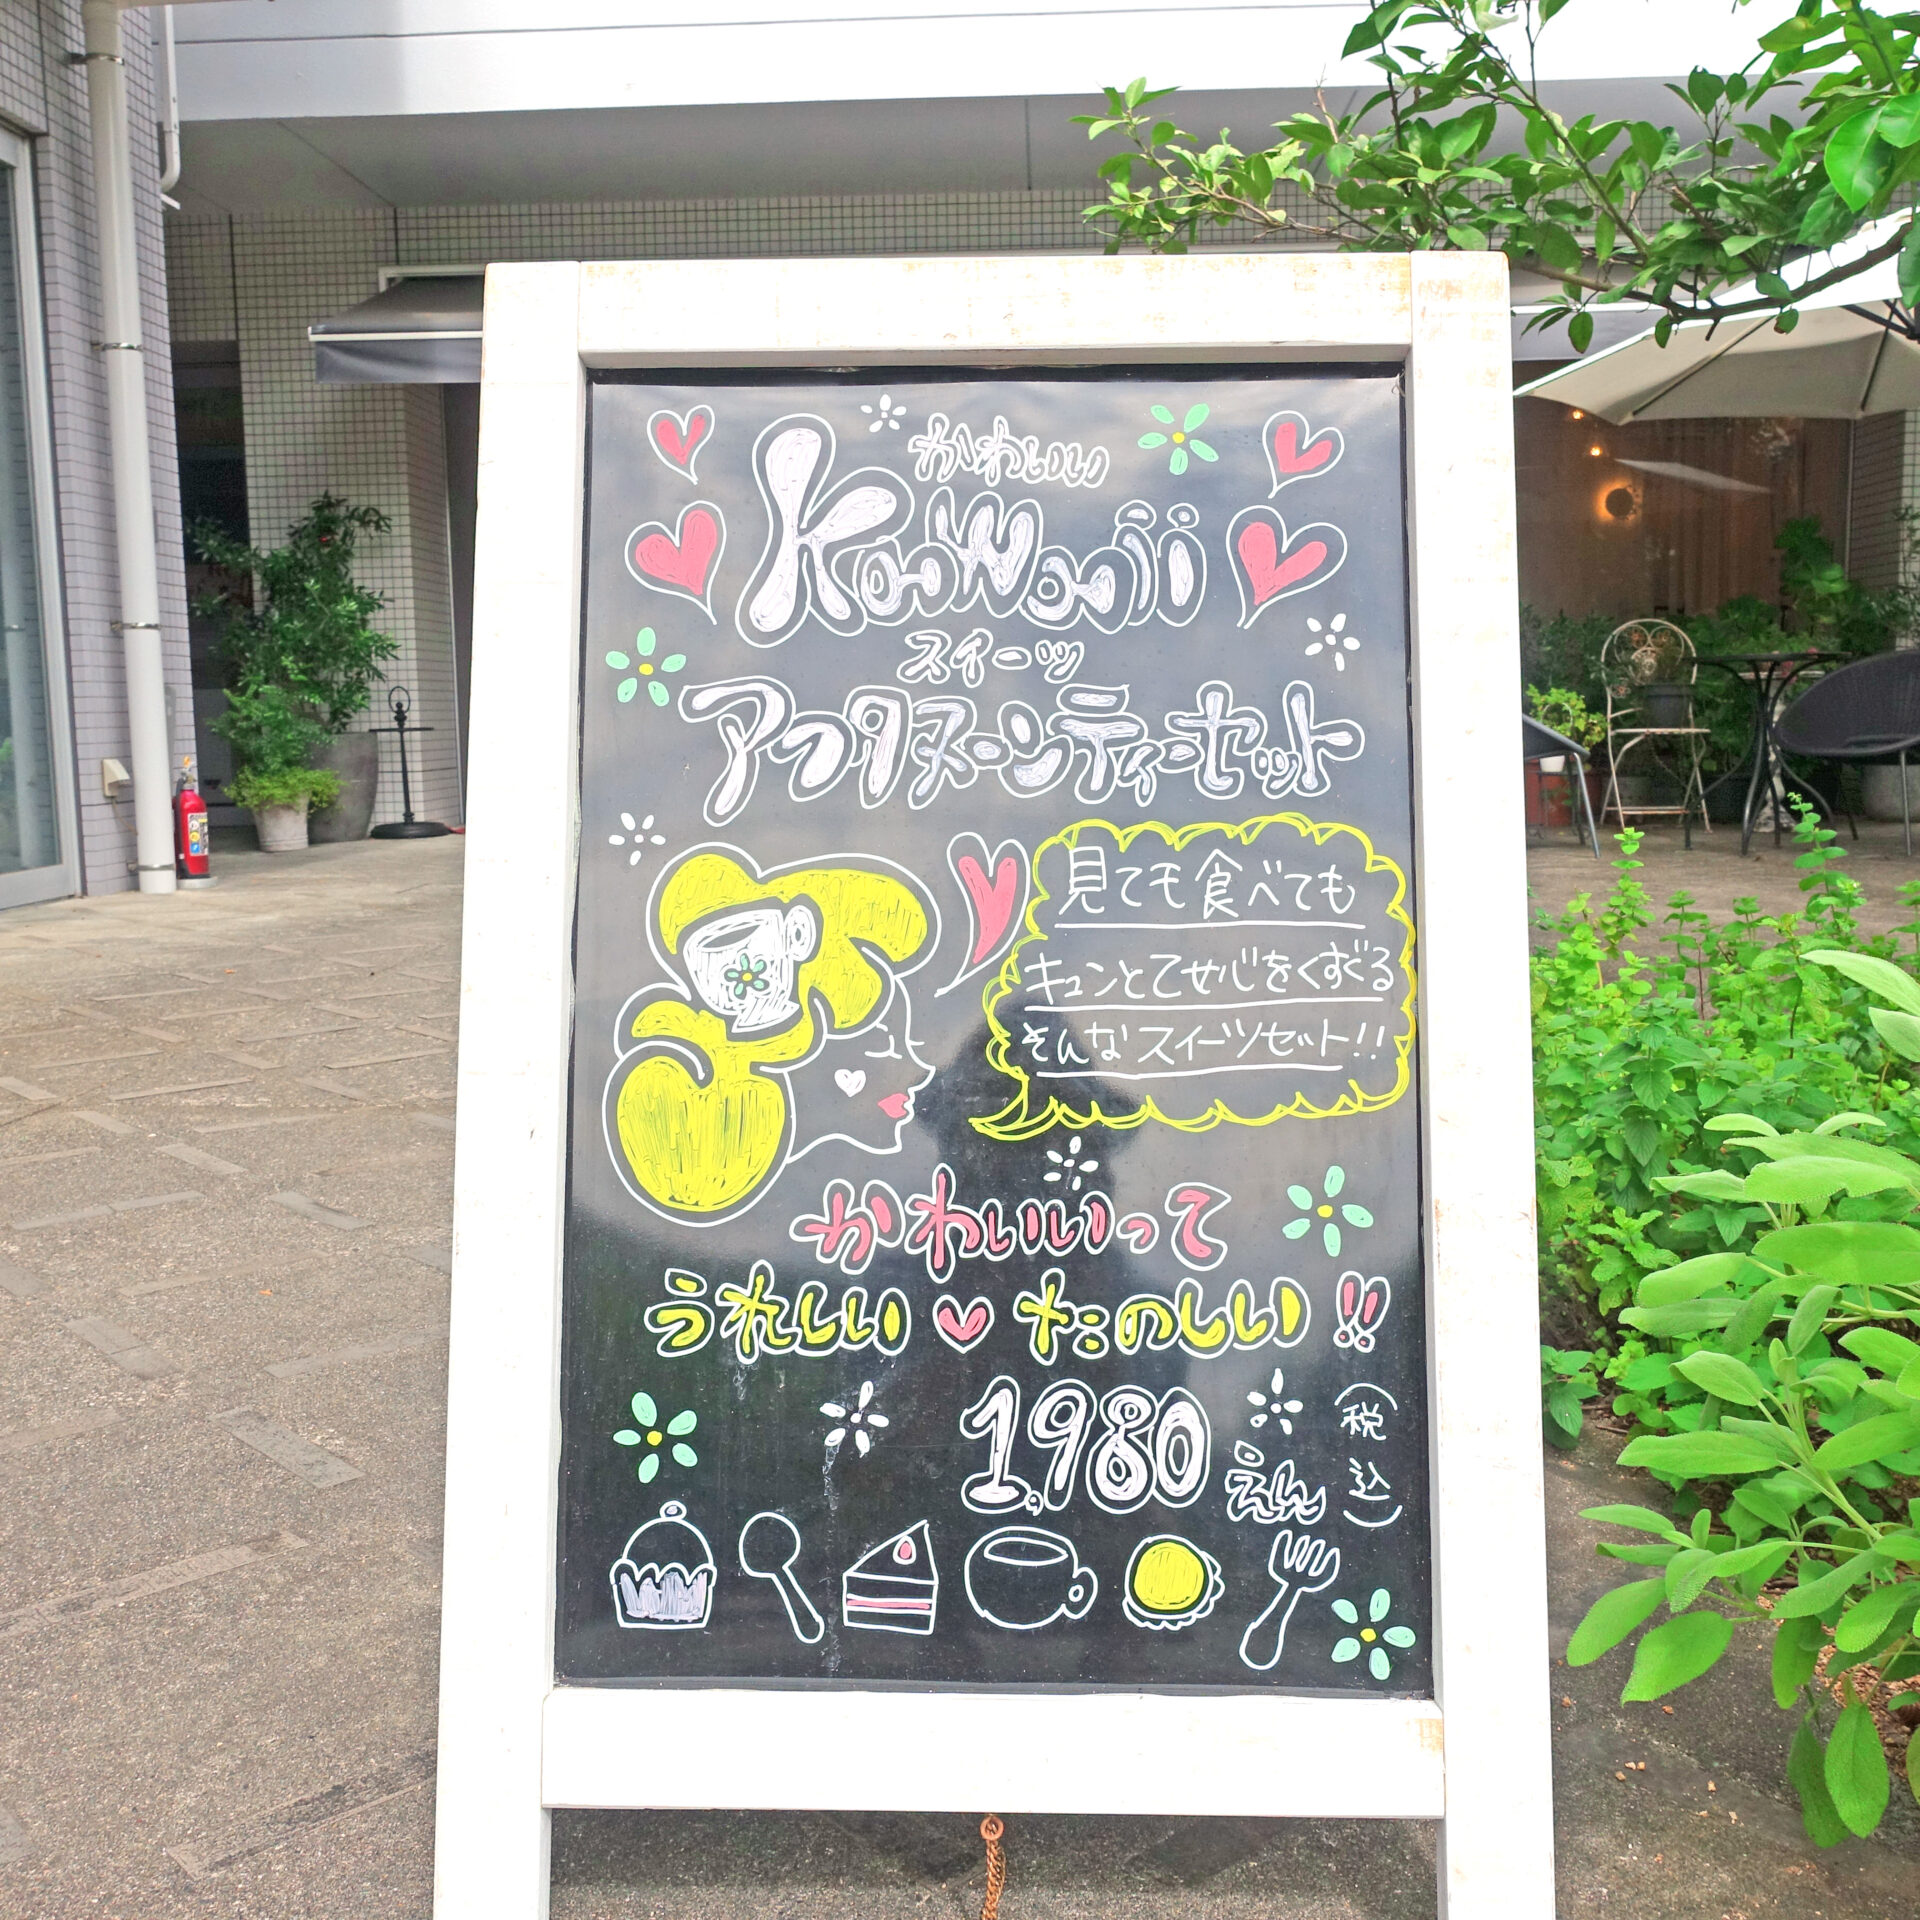 かわいい
Kawaii
スイーツ
アフタヌーンティーセット
見ても食べても
キュンとてせ心をくすぐる
そんなスイーツセット!!
かわいいって
うれしい♥たのしい!!
1,980えん(税込)